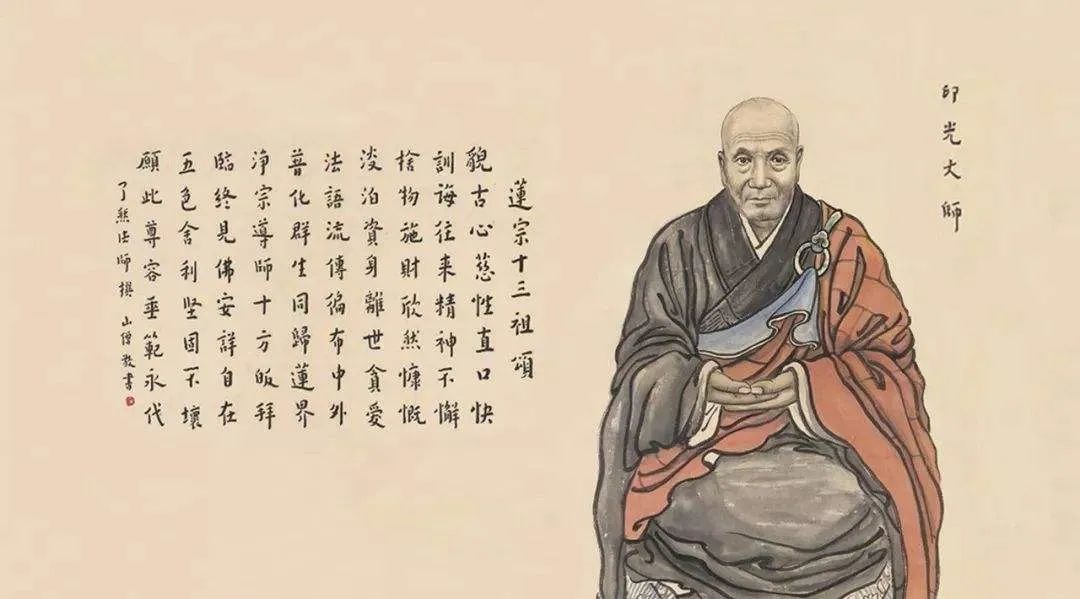 印光大師
蓮宗十三祖頌
貌古心慈性直口快
訓誨往来精神不懈
捨物施財欣然慷慨
淡泊資身離世貪愛
法語流傳徧布中外
普化群生同歸蓮界
淨宗導師十方皈拜
臨終見佛安詳自在
五色舍利坚固不壞
願此尊容垂範永代
了然法師撰 山僧敬書